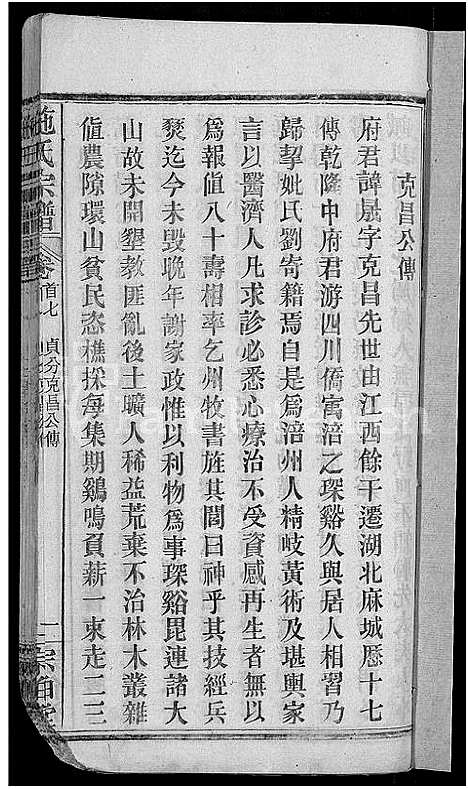 克昌公傳
府君諱晟字克昌先世由江西餘干遷湖北麻城歷十七
傳乾隆中府君游四川僑寓涪之琛谿久與居人相習乃
歸挈妣氏劉寄籍焉自是爲涪州人精岐黃術及堪輿家
言以醫濟人凡求診必悉心療治不受資感再生者無以
爲報値八十壽相率乞州牧書旌其閭曰神乎其技經兵
燹迄今未毀晚年謝家政惟以利物爲事琛谿毘連諸大
山故未開墾教匪亂後土曠人稀益荒棄不治林木叢雜
値農隙環山貧民恣樵採每集期鷄鳴負薪一束走二三
施氏宗譜
卷首七
貞分克昌公傳
一